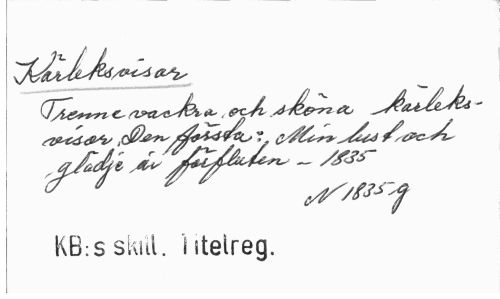 Kärleksvisor
Trenne vackra och sköna kärleks-
visor, Den första: Min lust och
glädje är förfluten – 1835
N 1835 g
KB:s skill. Titelreg.